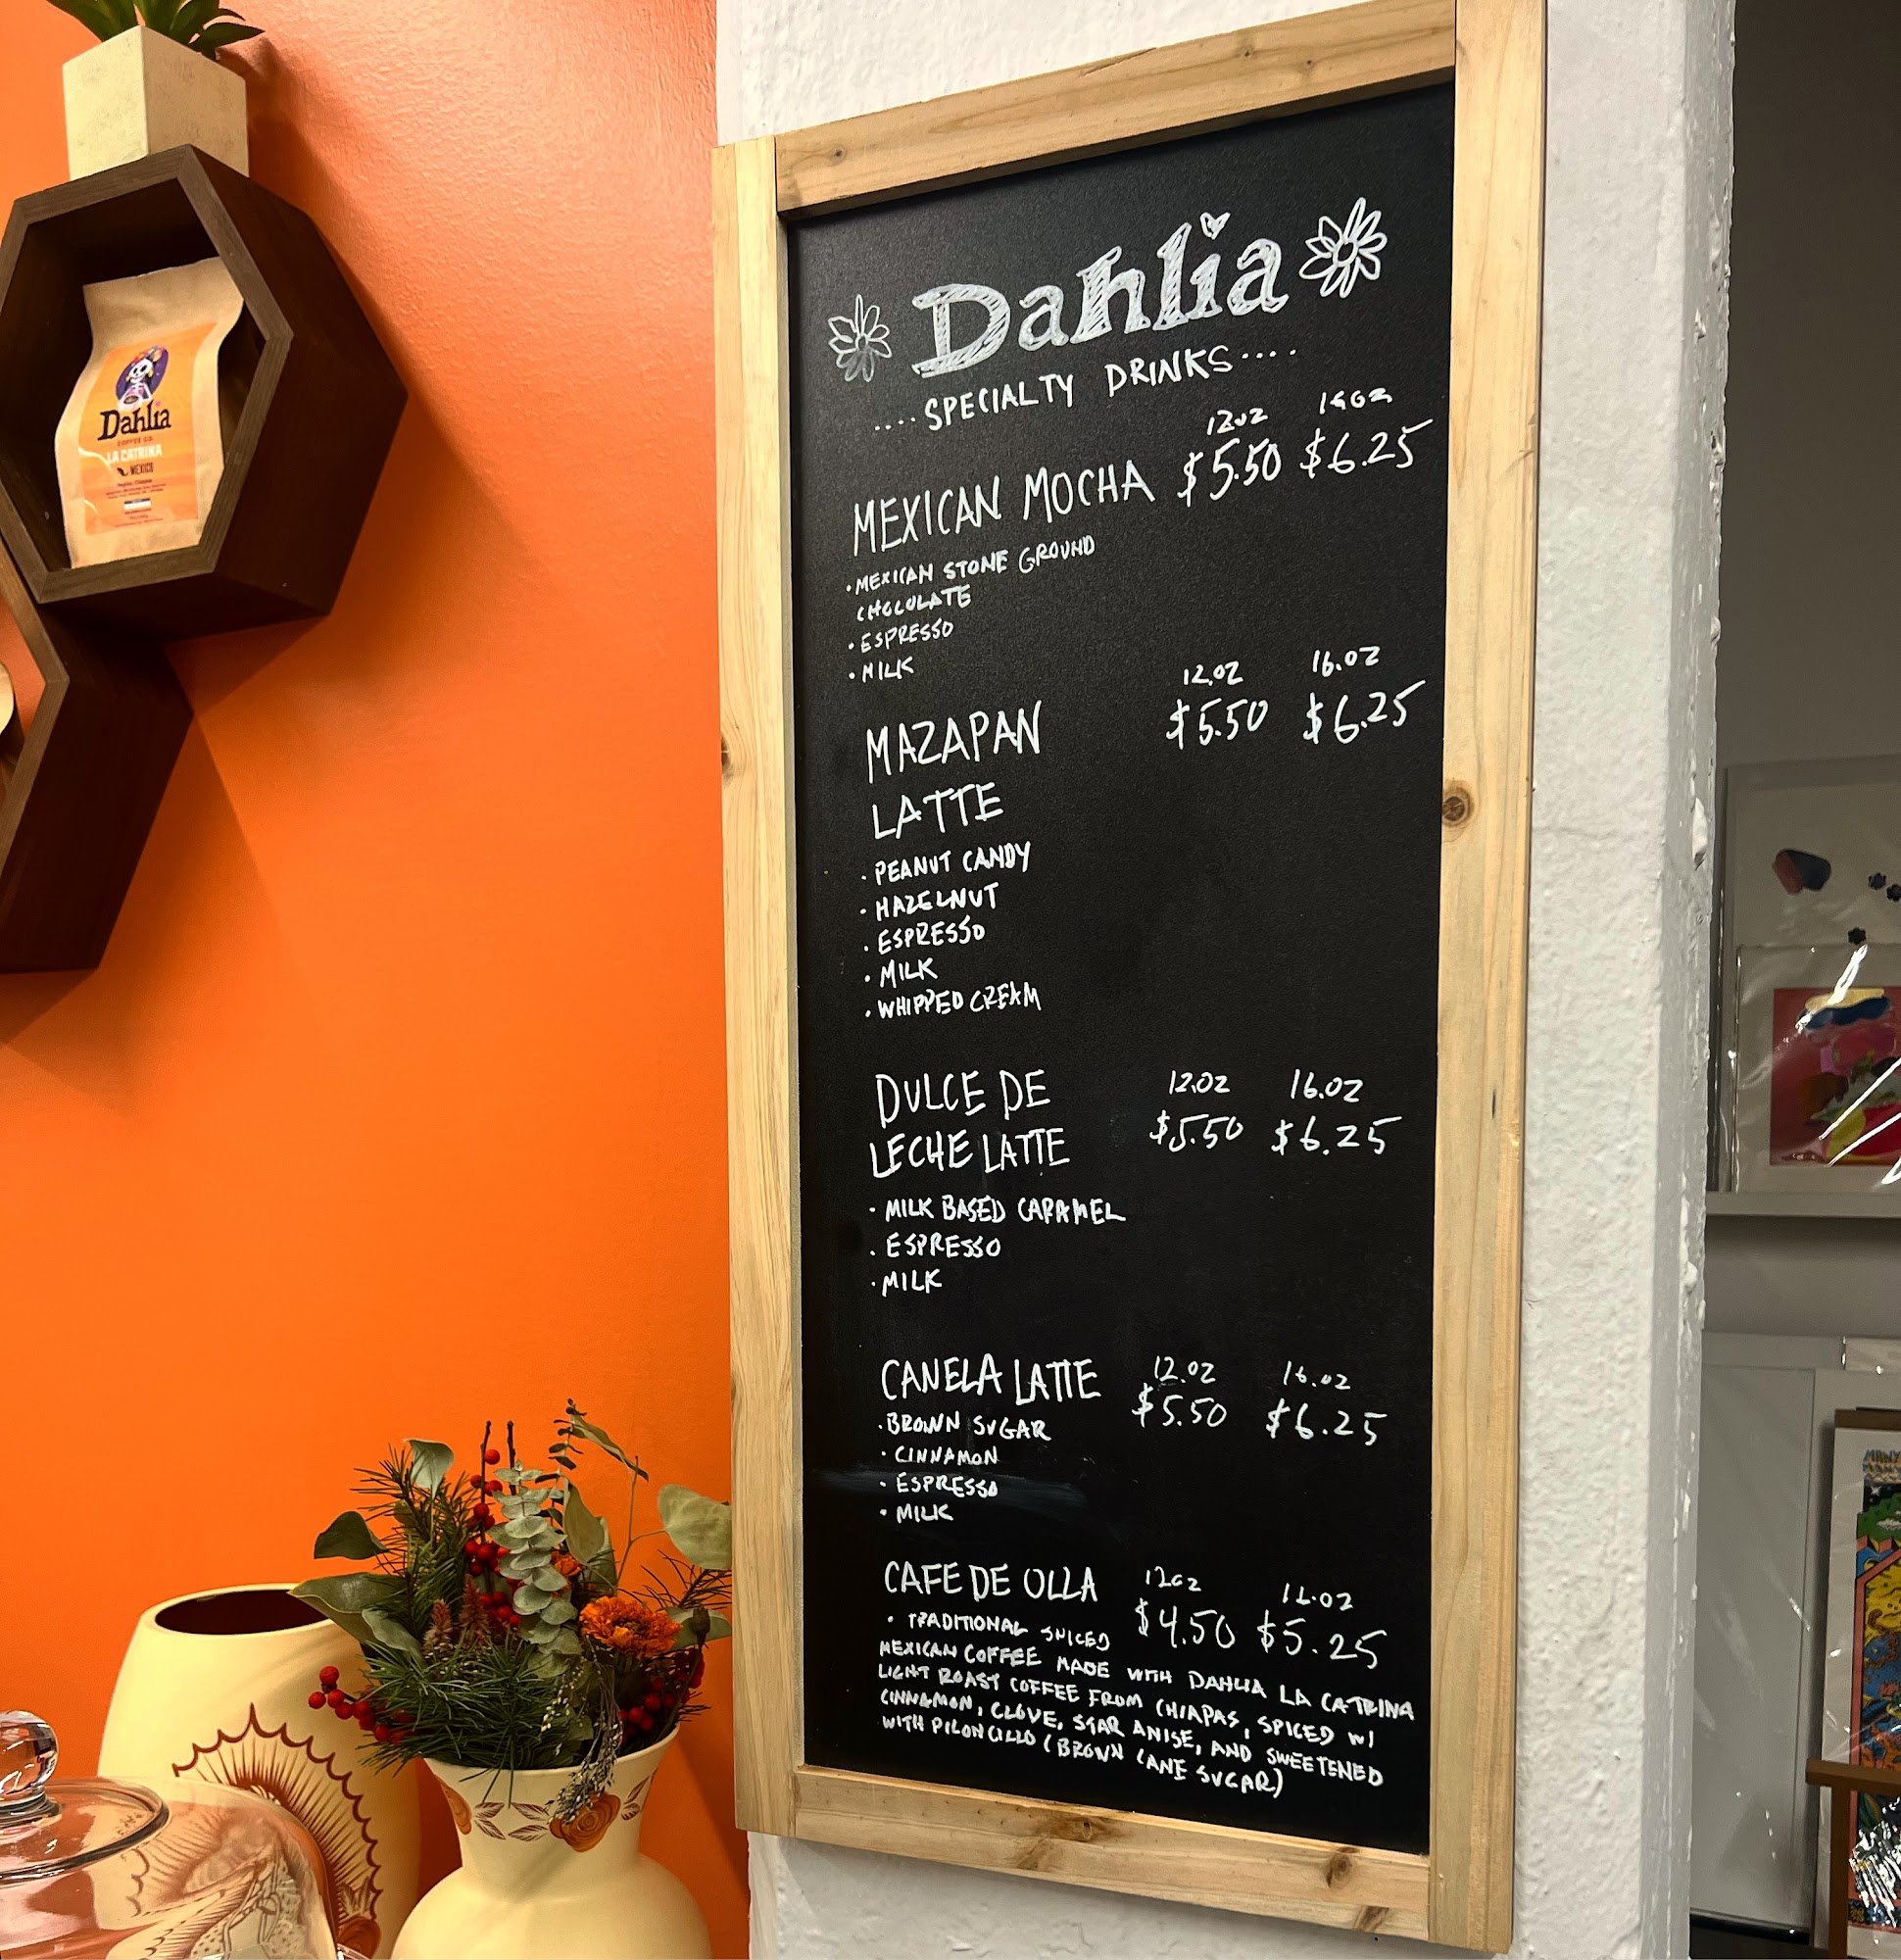 Dahlia
COFFEE CO.
LA CATRINA
MEXICO
Dahlia
....SPECIALTY DRINKS....
12oz 16oz
MEXICAN MOCHA $5.50 $6.25
·MEXICAN STONE GROUND
CHOCOLATE
·ESPRESSO
·MILK
12.oz 16.oz
MAZAPAN $5.50 $6.25
LATTE
·PEANUT CANDY
·HAZELNUT
·ESPRESSO
·MILK
·WHIPPED CREAM
DULCE DE 12.oz 16.oz
LECHE LATTE $5.50 $6.25
·MILK BASED CARAMEL
·ESPRESSO
·MILK
CANELA LATTE 12.oz 16.oz
$5.50 $6.25
·BROWN SUGAR
·CINNAMON
·ESPRESSO
·MILK
CAFE DE OLLA 12oz 16.oz
$4.50 $5.25
·TRADITIONAL SPICED
MEXICAN COFFEE MADE WITH DAHLIA LA CATRINA
LIGHT ROAST COFFEE FROM CHIAPAS, SPICED W/
CINNAMON, CLOVE, STAR ANISE, AND SWEETENED
WITH PILONCILLO (BROWN CANE SUGAR)